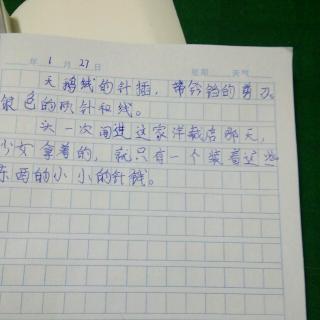 年 1 月 27 日 星期 天气
天鹅绒的针插，带铃铛的剪刀，
银色的顶针和线。
头一次闯进这家洋裁店那天，
少女拿着的，就只有一个装着这些
东西的小小的针线。